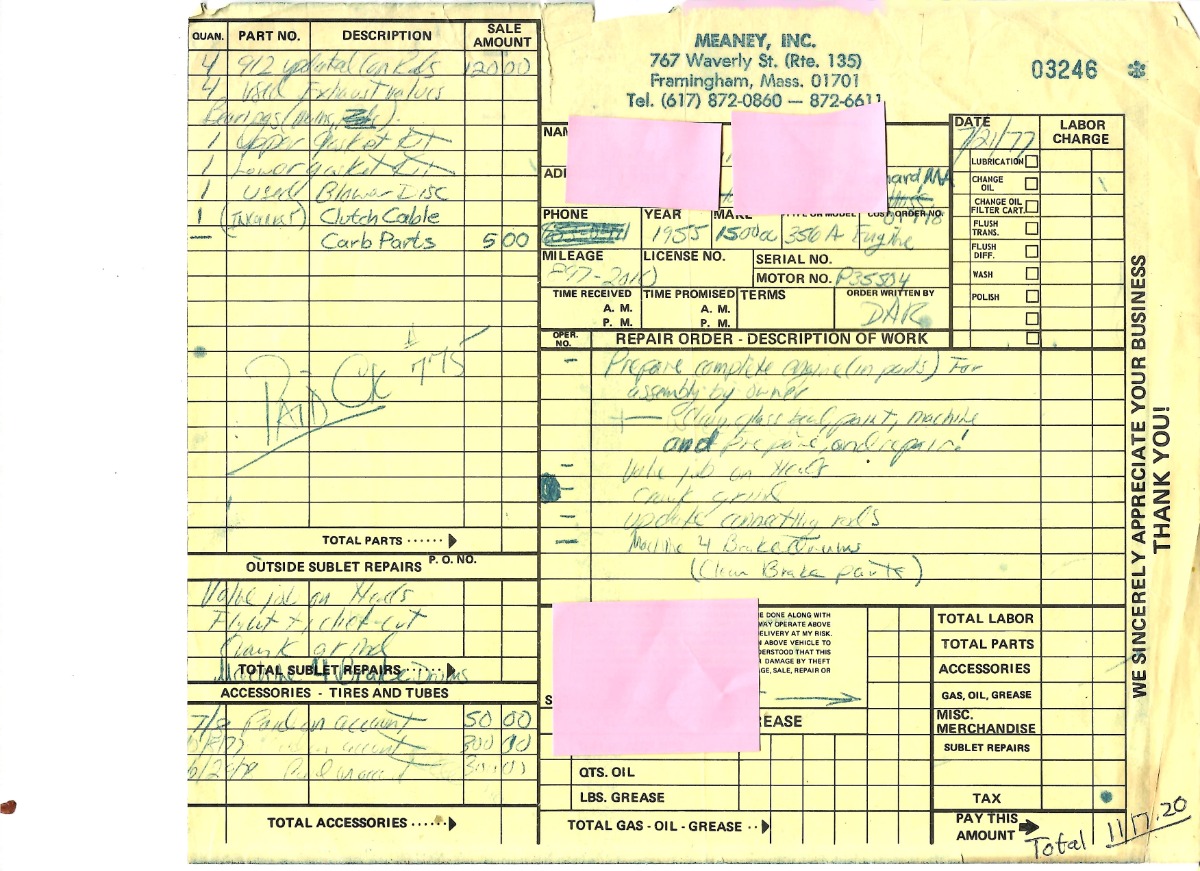 QUAN. PART NO. DESCRIPTION SALE AMOUNT
4 912 updated Con Rods 120 00
4 Used Exhaust valves
Bearings (mains,
1 Upper gasket KIT
1 Lower gasket KIT
1 Used Blower Disc
1 Clutch Cable
— Carb Parts 5 00
PAID CK $775
TOTAL PARTS
OUTSIDE SUBLET REPAIRS P. O. NO.
Valve job on Heads
cut
Crank grind
Machine 4 Brake Drums
TOTAL SUBLET REPAIRS
ACCESSORIES - TIRES AND TUBES
Paid on account 50 00
on account 300 00
Paid on account
TOTAL ACCESSORIES
MEANEY, INC.
767 Waverly St. (Rte. 135)
Framingham, Mass. 01701
Tel. (617) 872-0860 — 872-6611
03246 ✽
NAM
ADD
PHONE YEAR 1955 MAKE 1500cc TYPE OR MODEL 356A Engine CUST. ORDER NO.
MILEAGE LICENSE NO. SERIAL NO.
MOTOR NO. P35504
TIME RECEIVED A. M. P. M. TIME PROMISED A. M. P. M. TERMS ORDER WRITTEN BY DAR
DATE 7/21/77 LABOR CHARGE
LUBRICATION
CHANGE OIL
CHANGE OIL FILTER CART.
FLUSH TRANS.
FLUSH DIFF.
WASH
POLISH
OPER. NO. REPAIR ORDER - DESCRIPTION OF WORK
— Prepare complete engine (in parts) For
assembly by owner
Clean, glass bead, paint, machine
and prepare and repair!
— Valve job on Heads
crank grind
— update connecting rods
— Machine 4 Brake Drums
(Clean Brake parts)
E DONE ALONG WITH
MAY OPERATE ABOVE
ELIVERY AT MY RISK.
N ABOVE VEHICLE TO
DERSTOOD THAT THIS
DAMAGE BY THEFT
AGE, SALE, REPAIR OR
S
REASE
QTS. OIL
LBS. GREASE
TOTAL GAS - OIL - GREASE
TOTAL LABOR
TOTAL PARTS
ACCESSORIES
GAS, OIL, GREASE
MISC. MERCHANDISE
SUBLET REPAIRS
TAX
PAY THIS AMOUNT
Total 1117.20
WE SINCERELY APPRECIATE YOUR BUSINESS
THANK YOU!